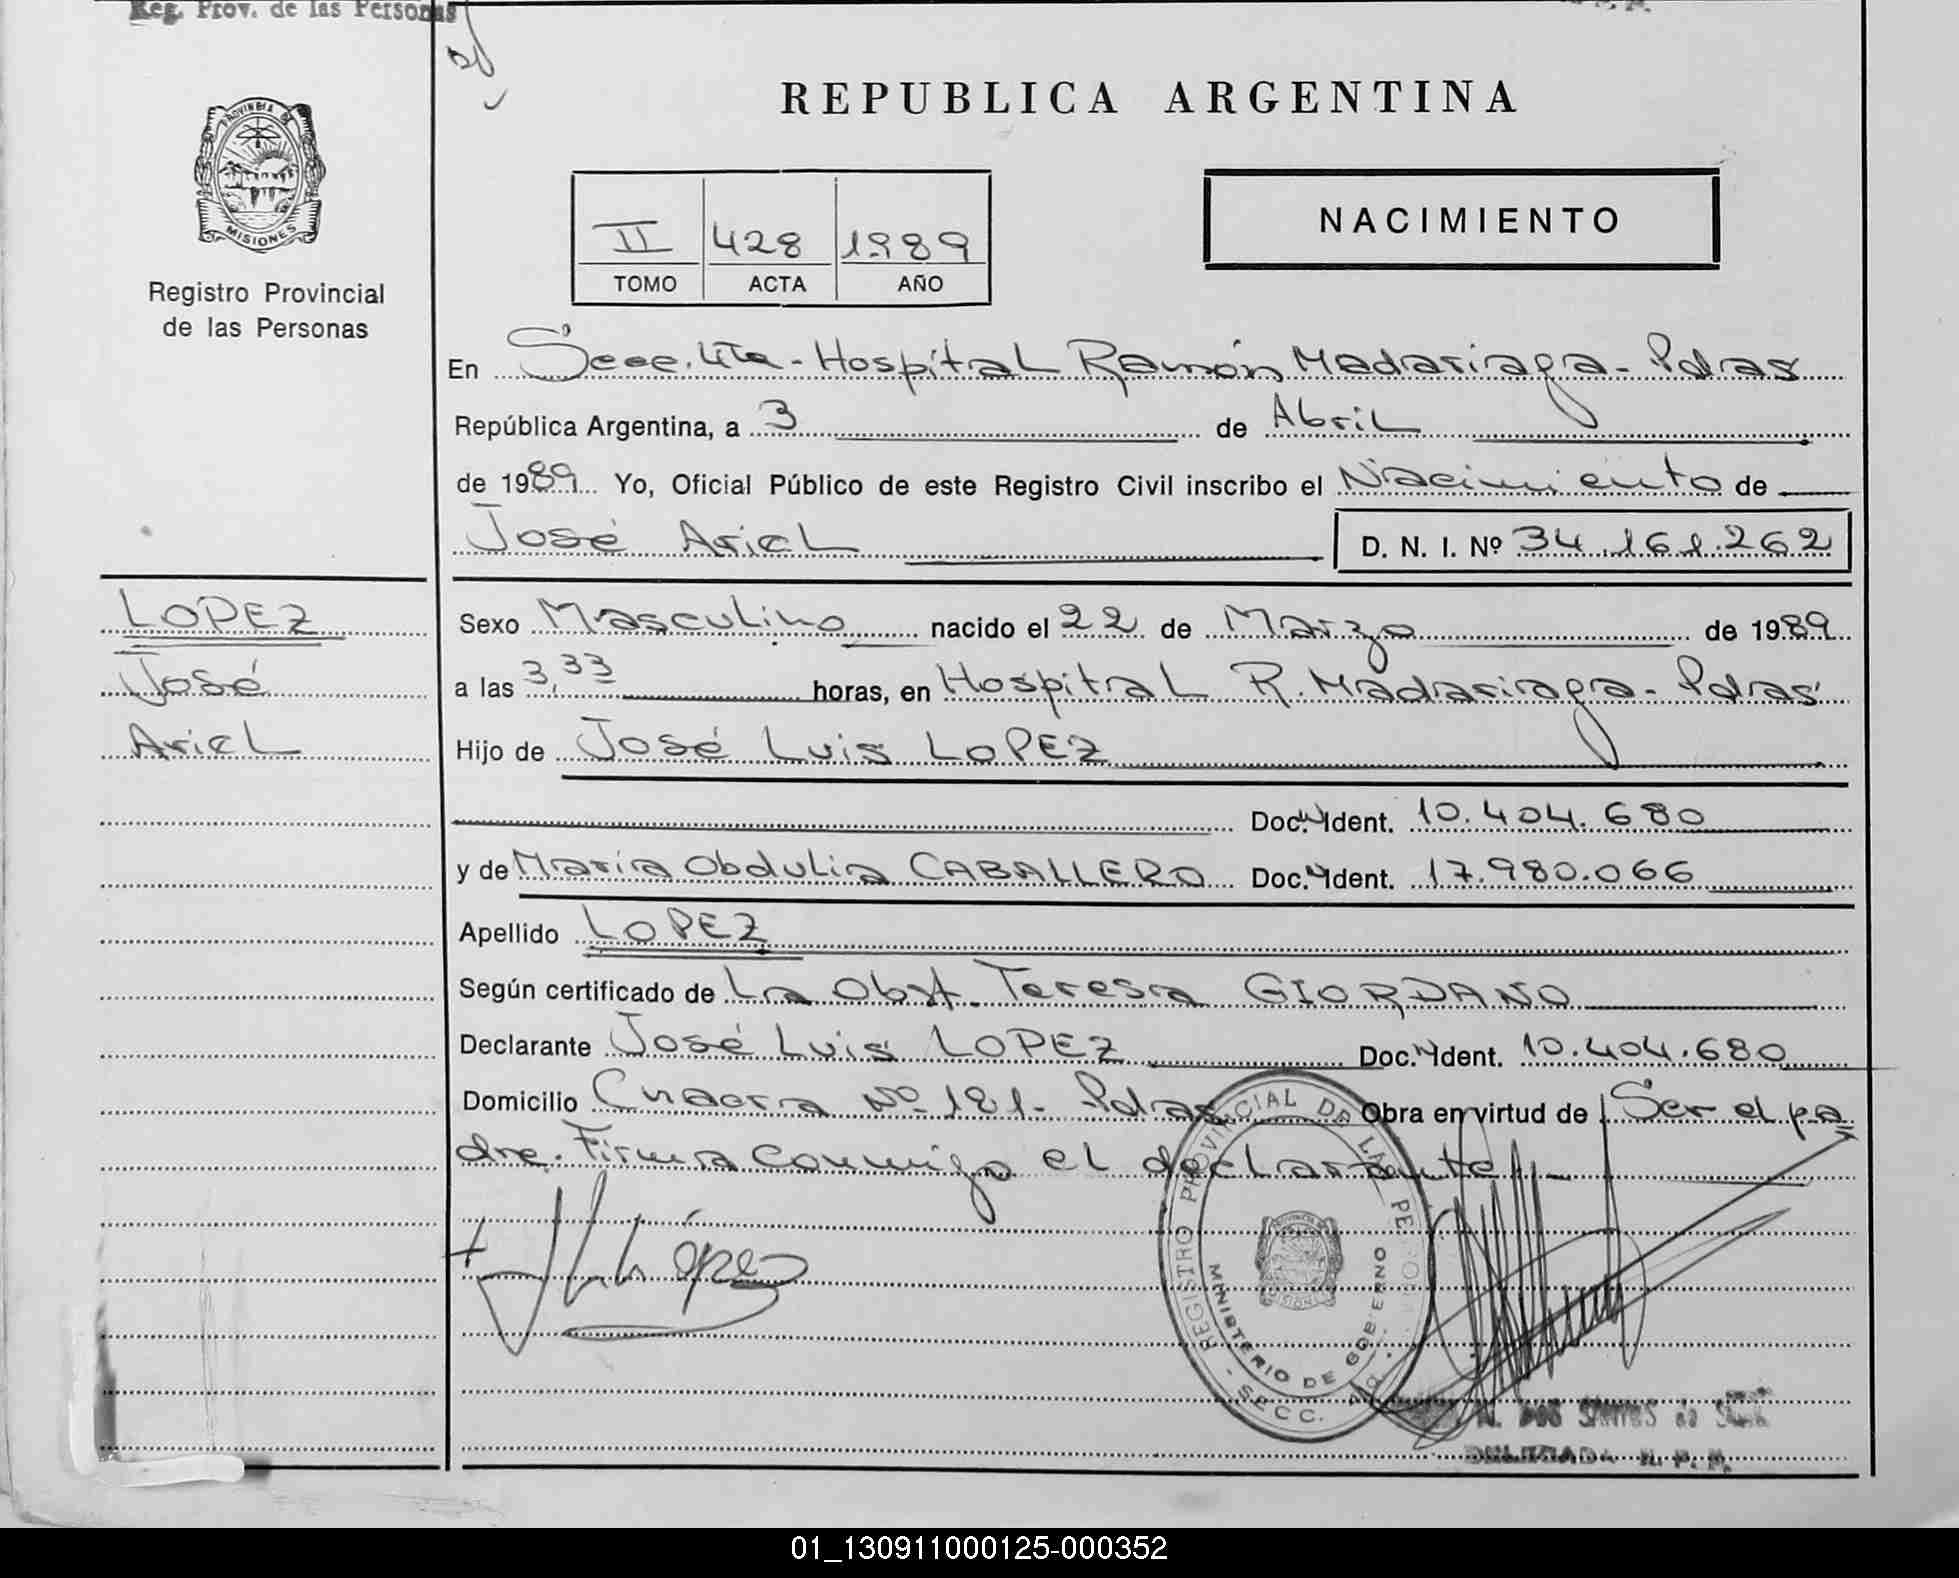 Reg. Prov. de las Personas
PROVINCIA DE
MISIONES
Registro Provincial
de las Personas
LOPEZ
José
Ariel
REPUBLICA ARGENTINA
II 428 1989
TOMO ACTA AÑO
NACIMIENTO
En Secc. 4ta - Hospital Ramón Madariaga - Pdas
República Argentina, a 3 de Abril
de 1989 Yo, Oficial Público de este Registro Civil inscribo el Nacimiento de
José Ariel D. N. I. Nº 34.161.262
Sexo Masculino nacido el 22 de Marzo de 1989
a las 3,33 horas, en Hospital R. Madariaga - Pdas
Hijo de José Luis LOPEZ
Doc. Ident. 10.404.680
y de María Obdulia CABALLERO Doc. Ident. 17.980.066
Apellido LOPEZ
Según certificado de La Obst. Teresa GIORDANO
Declarante José Luis LOPEZ Doc. Ident. 10.404.680
Domicilio Chacra Nº 181 - Pdas Obra en virtud de Ser el pa
dre. Firma conmigo el declarante -
López
REGISTRO PROVINCIAL DE LAS PE
MINISTERIO DE GOBIERNO
SECC.
N. DOS SANTOS de
DELEGADA R. P. P.
01_130911000125-000352